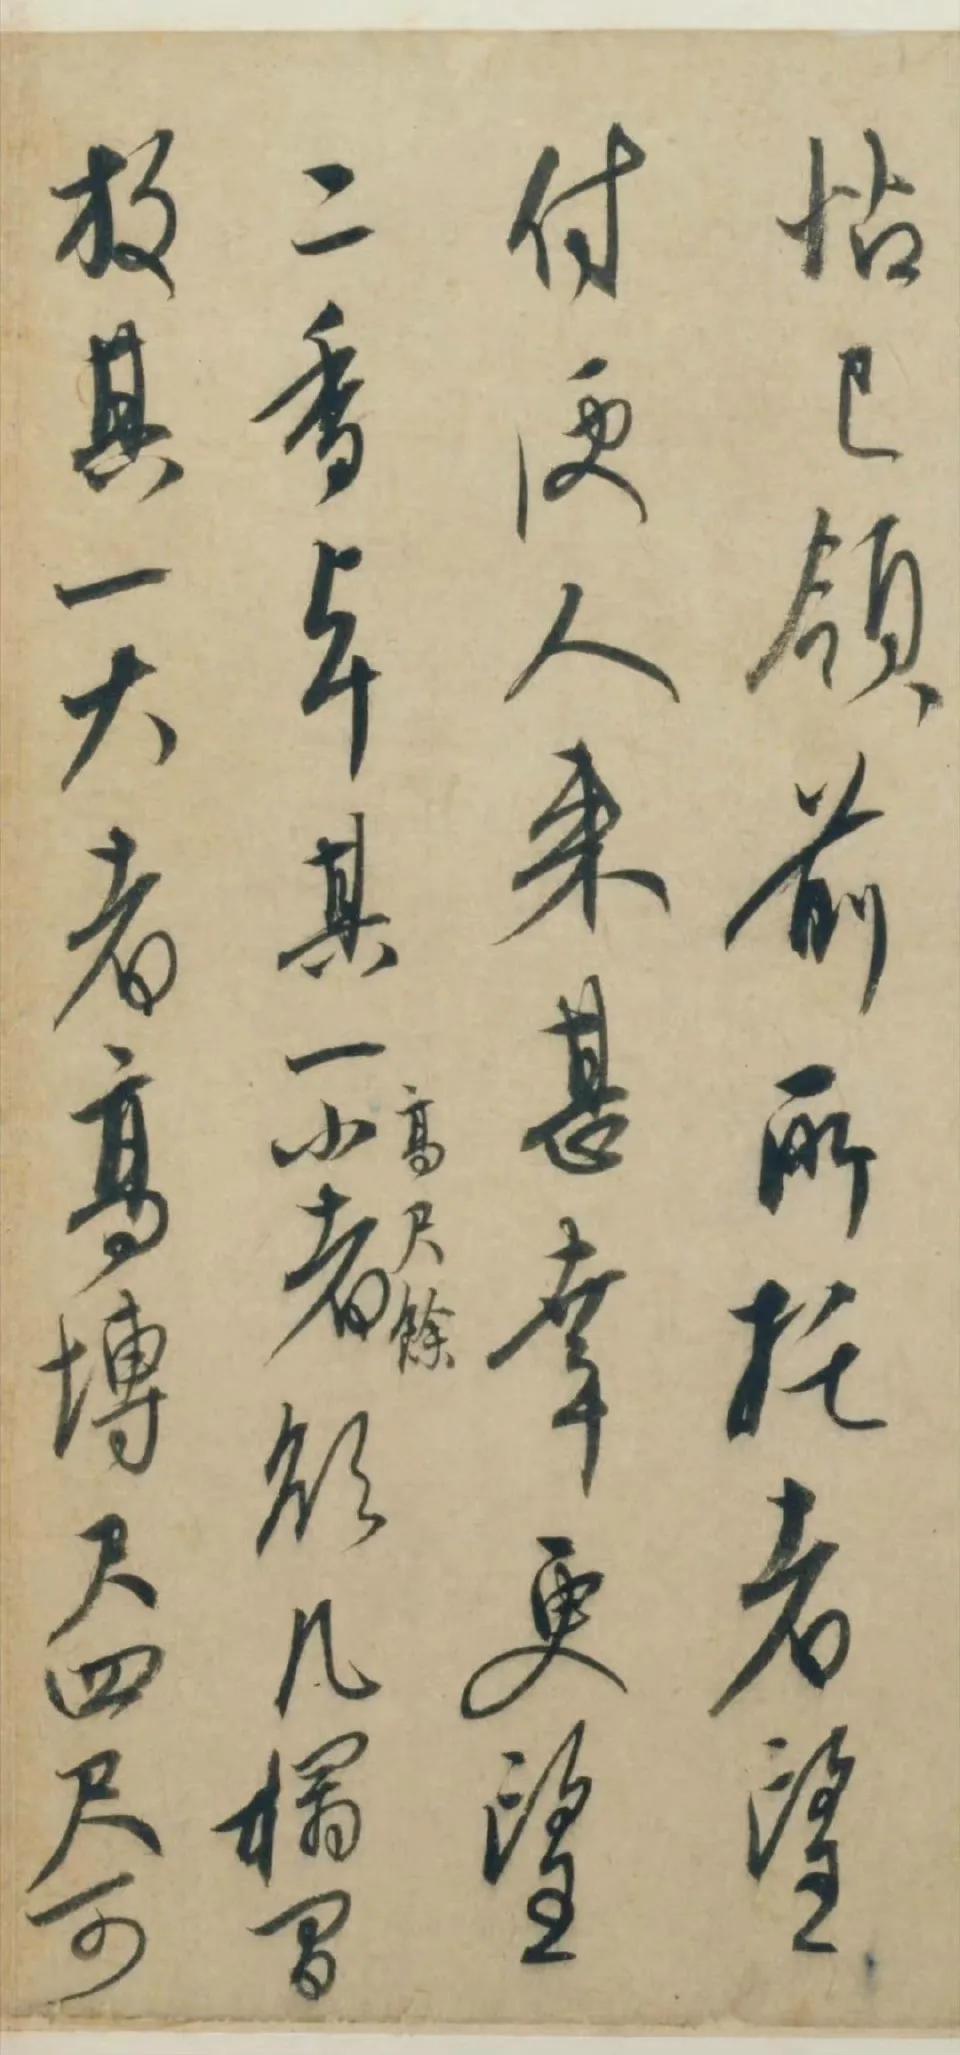 帖已領前所托者望
付便人来甚幸更望
二香卓其一小者欲几榻間
高尺餘
放其一大者高博尺四尺可